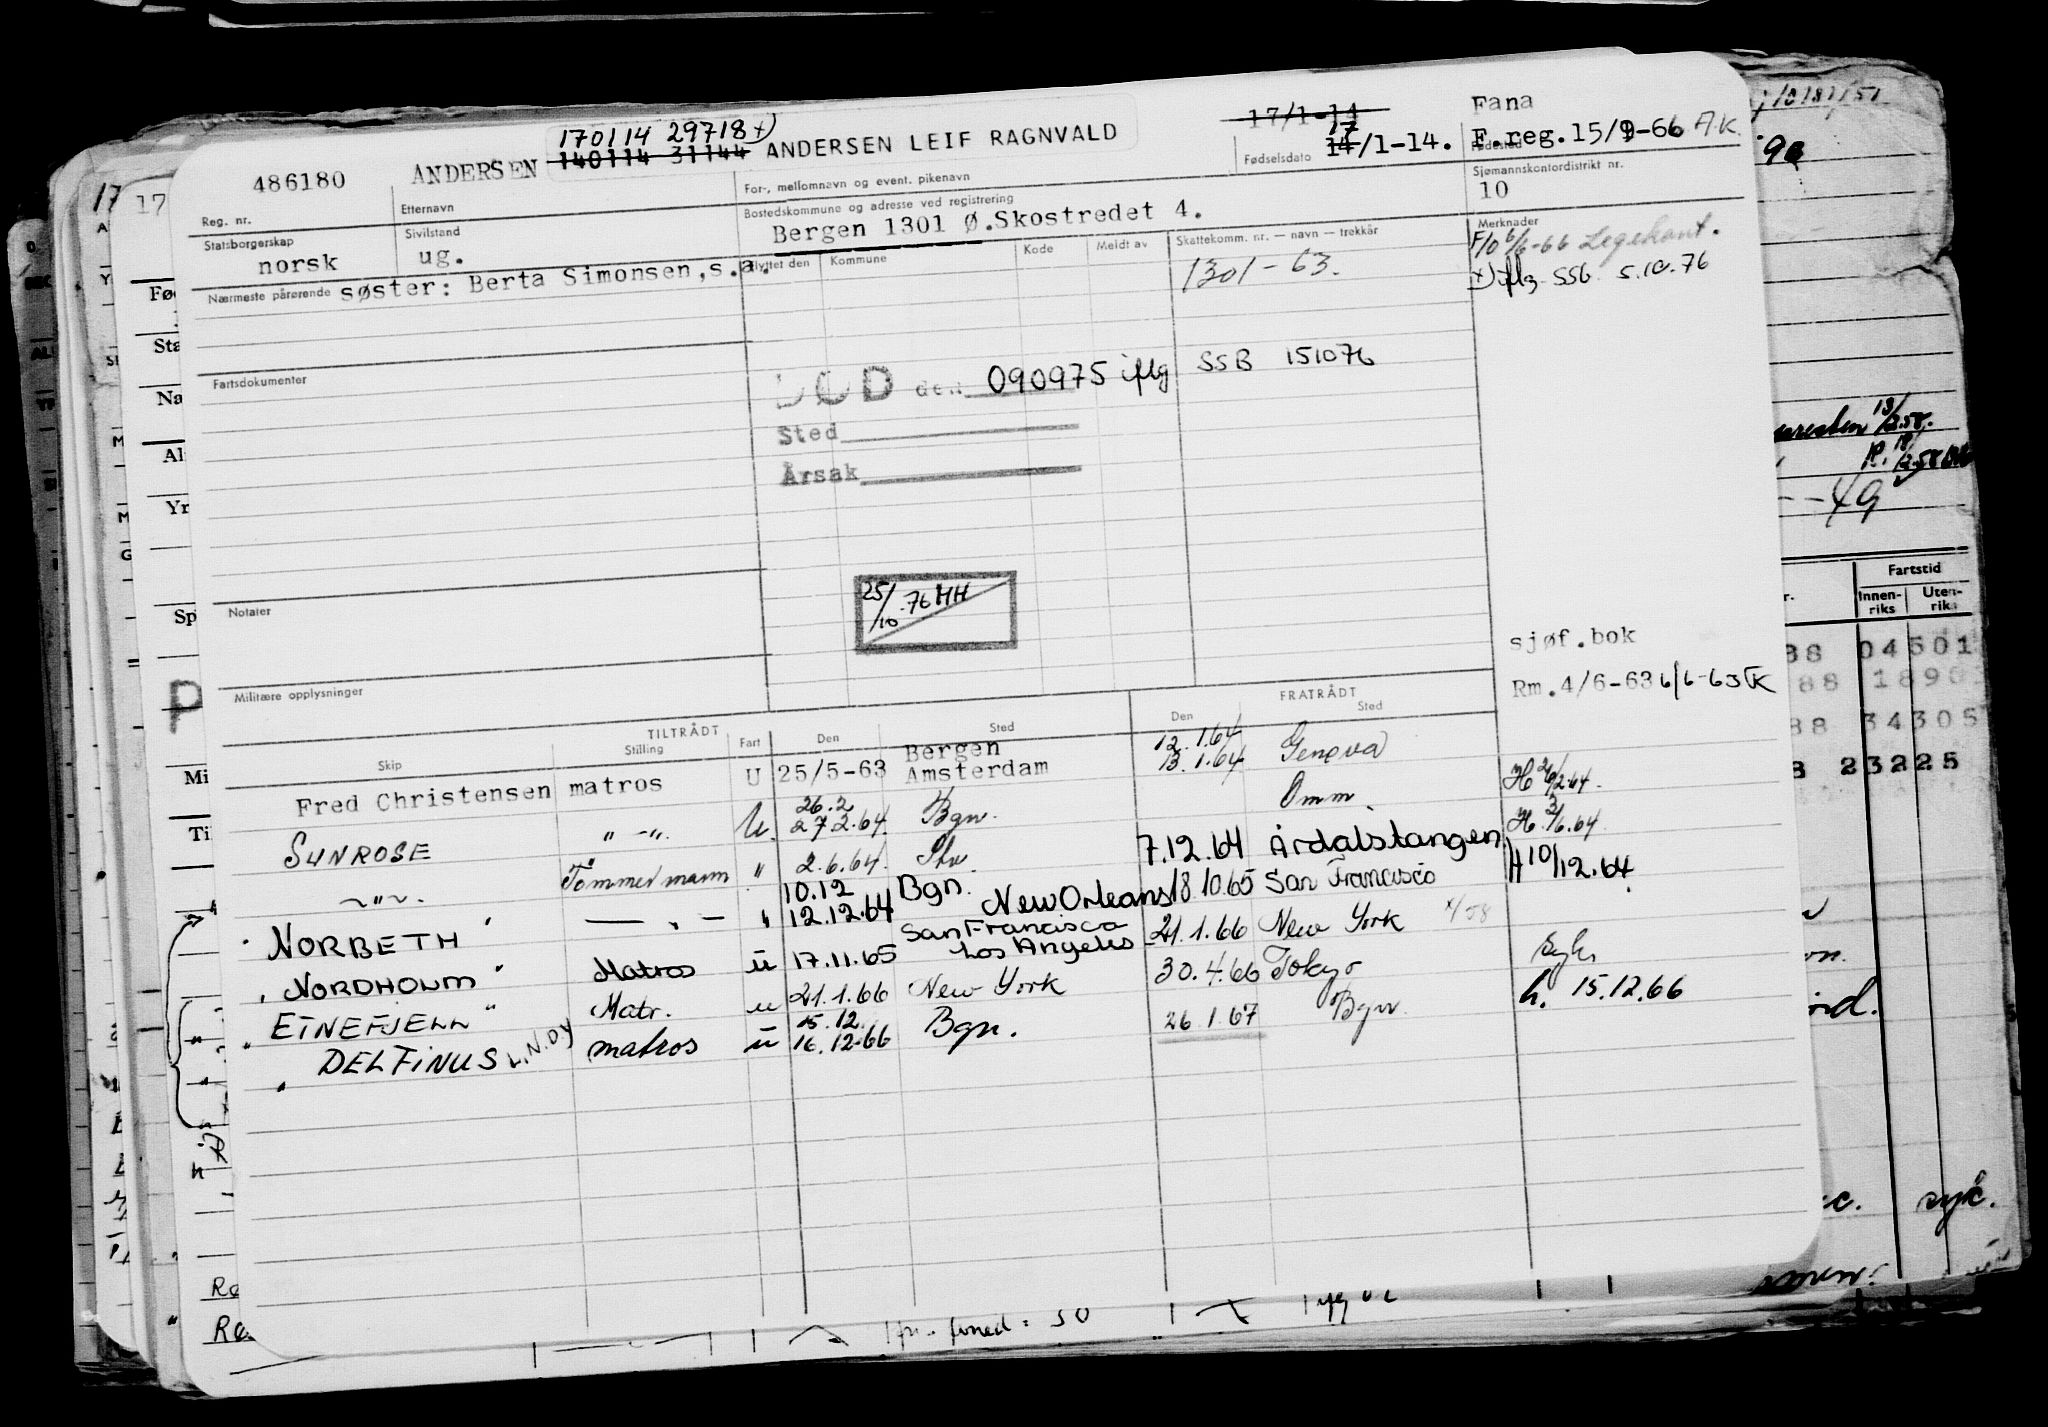 170114 29718 x)
486180 ANDERSEN 140114 31144 ANDERSEN LEIF RAGNVALD
17/1-14
17
Fødselsdato 14/1-14.
Fana
F.reg.15/9-66 A.K.
Fødested
Reg. nr. Etternavn For-, mellomnavn og event. pikenavn Sjømannskontordistrikt nr.
10
Statsborgerskap Sivilstand Bostedskommune og adresse ved registrering
norsk ug. Bergen 1301 Ø.Skostredet 4.
Merknader
F/O 6/6-66 Legekont.
x) iflg. SSB 5.10.76
Nærmeste pårørende søster: Berta Simonsen,s.a.
Flyttet den Kommune Kode Meldt av Skattekomm. nr. — navn — trekkår
1301-63.
Fartsdokumenter
DØD den 090975 iflg SSB 151076
Sted
Årsak
25/10-76 HH
Notater
sjøf.bok
Rm.4/6-63 6/6-63
Militære opplysninger
TILTRÅDT FRATRÅDT
Skip Stilling Fart Den Sted Den Sted
Fred Christensen matros U 25/5-63 Bergen Amsterdam 12.1.64 13.1.64 Genova
SUNROSE " -". U. 26.2 27.2.64 Bgn. Omm. H 26/2.64.
~"~. Tømmermann " 2.6.64. 7.12.64 Årdalstangen H. 3/6.64
NORBETH — " — " 10.12 12.12.64 Bgn. New Orleans 18.10.65 San Francisco H 10/12.64
NORDHOLM Matros u 17.11.65 San Francisco Los Angeles 21.1.66 New York
ETNEFJELL Matr. u 21.1.66 New York 30.4.66 Tokyo syk
DELFINUS L.N.D.Y matros u 15.12 16.12.66 Bgn. 26.1.67 Bgn. h. 15.12.66
Fartstid
Innen-riks Uten-riks
88 04501
88 1890
88 34305
8 23225
syk.